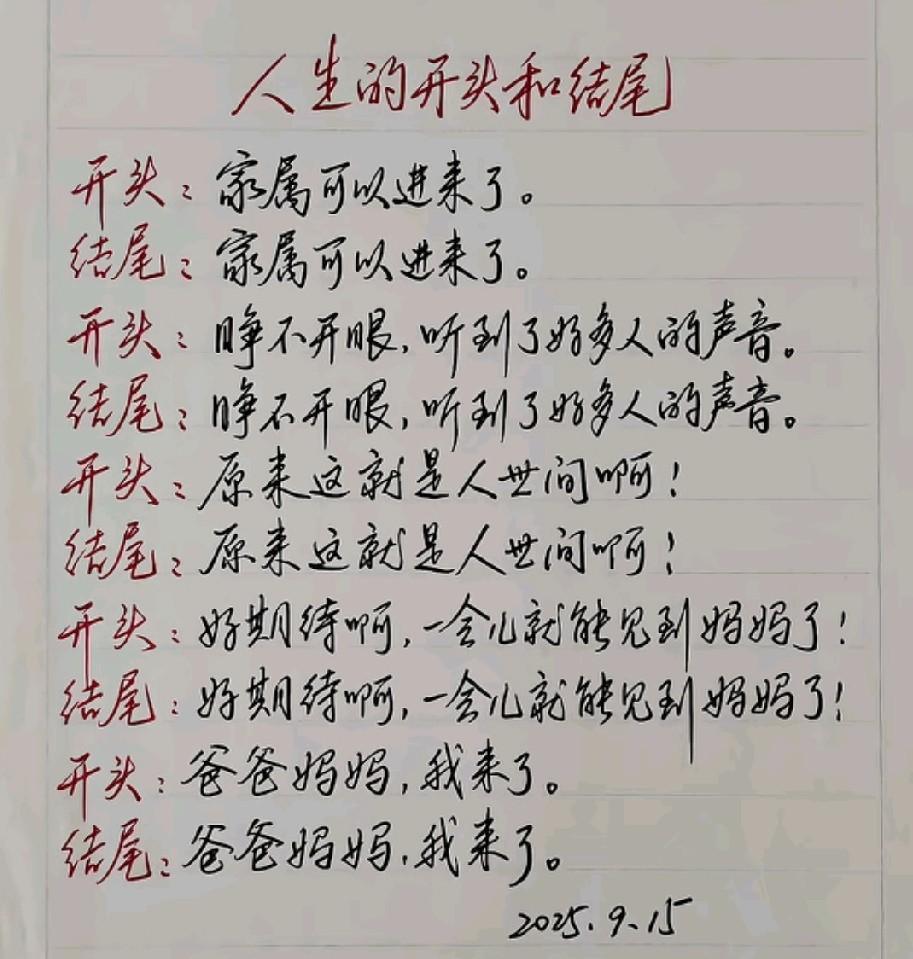 人生的开头和结尾
开头：家属可以进来了。
结尾：家属可以进来了。
开头：睁不开眼，听到了好多人的声音。
结尾：睁不开眼，听到了好多人的声音。
开头：原来这就是人世间啊！
结尾：原来这就是人世间啊！
开头：好期待啊，一会儿就能见到妈妈了！
结尾：好期待啊，一会儿就能见到妈妈了！
开头：爸爸妈妈，我来了。
结尾：爸爸妈妈，我来了。
2025.9.15